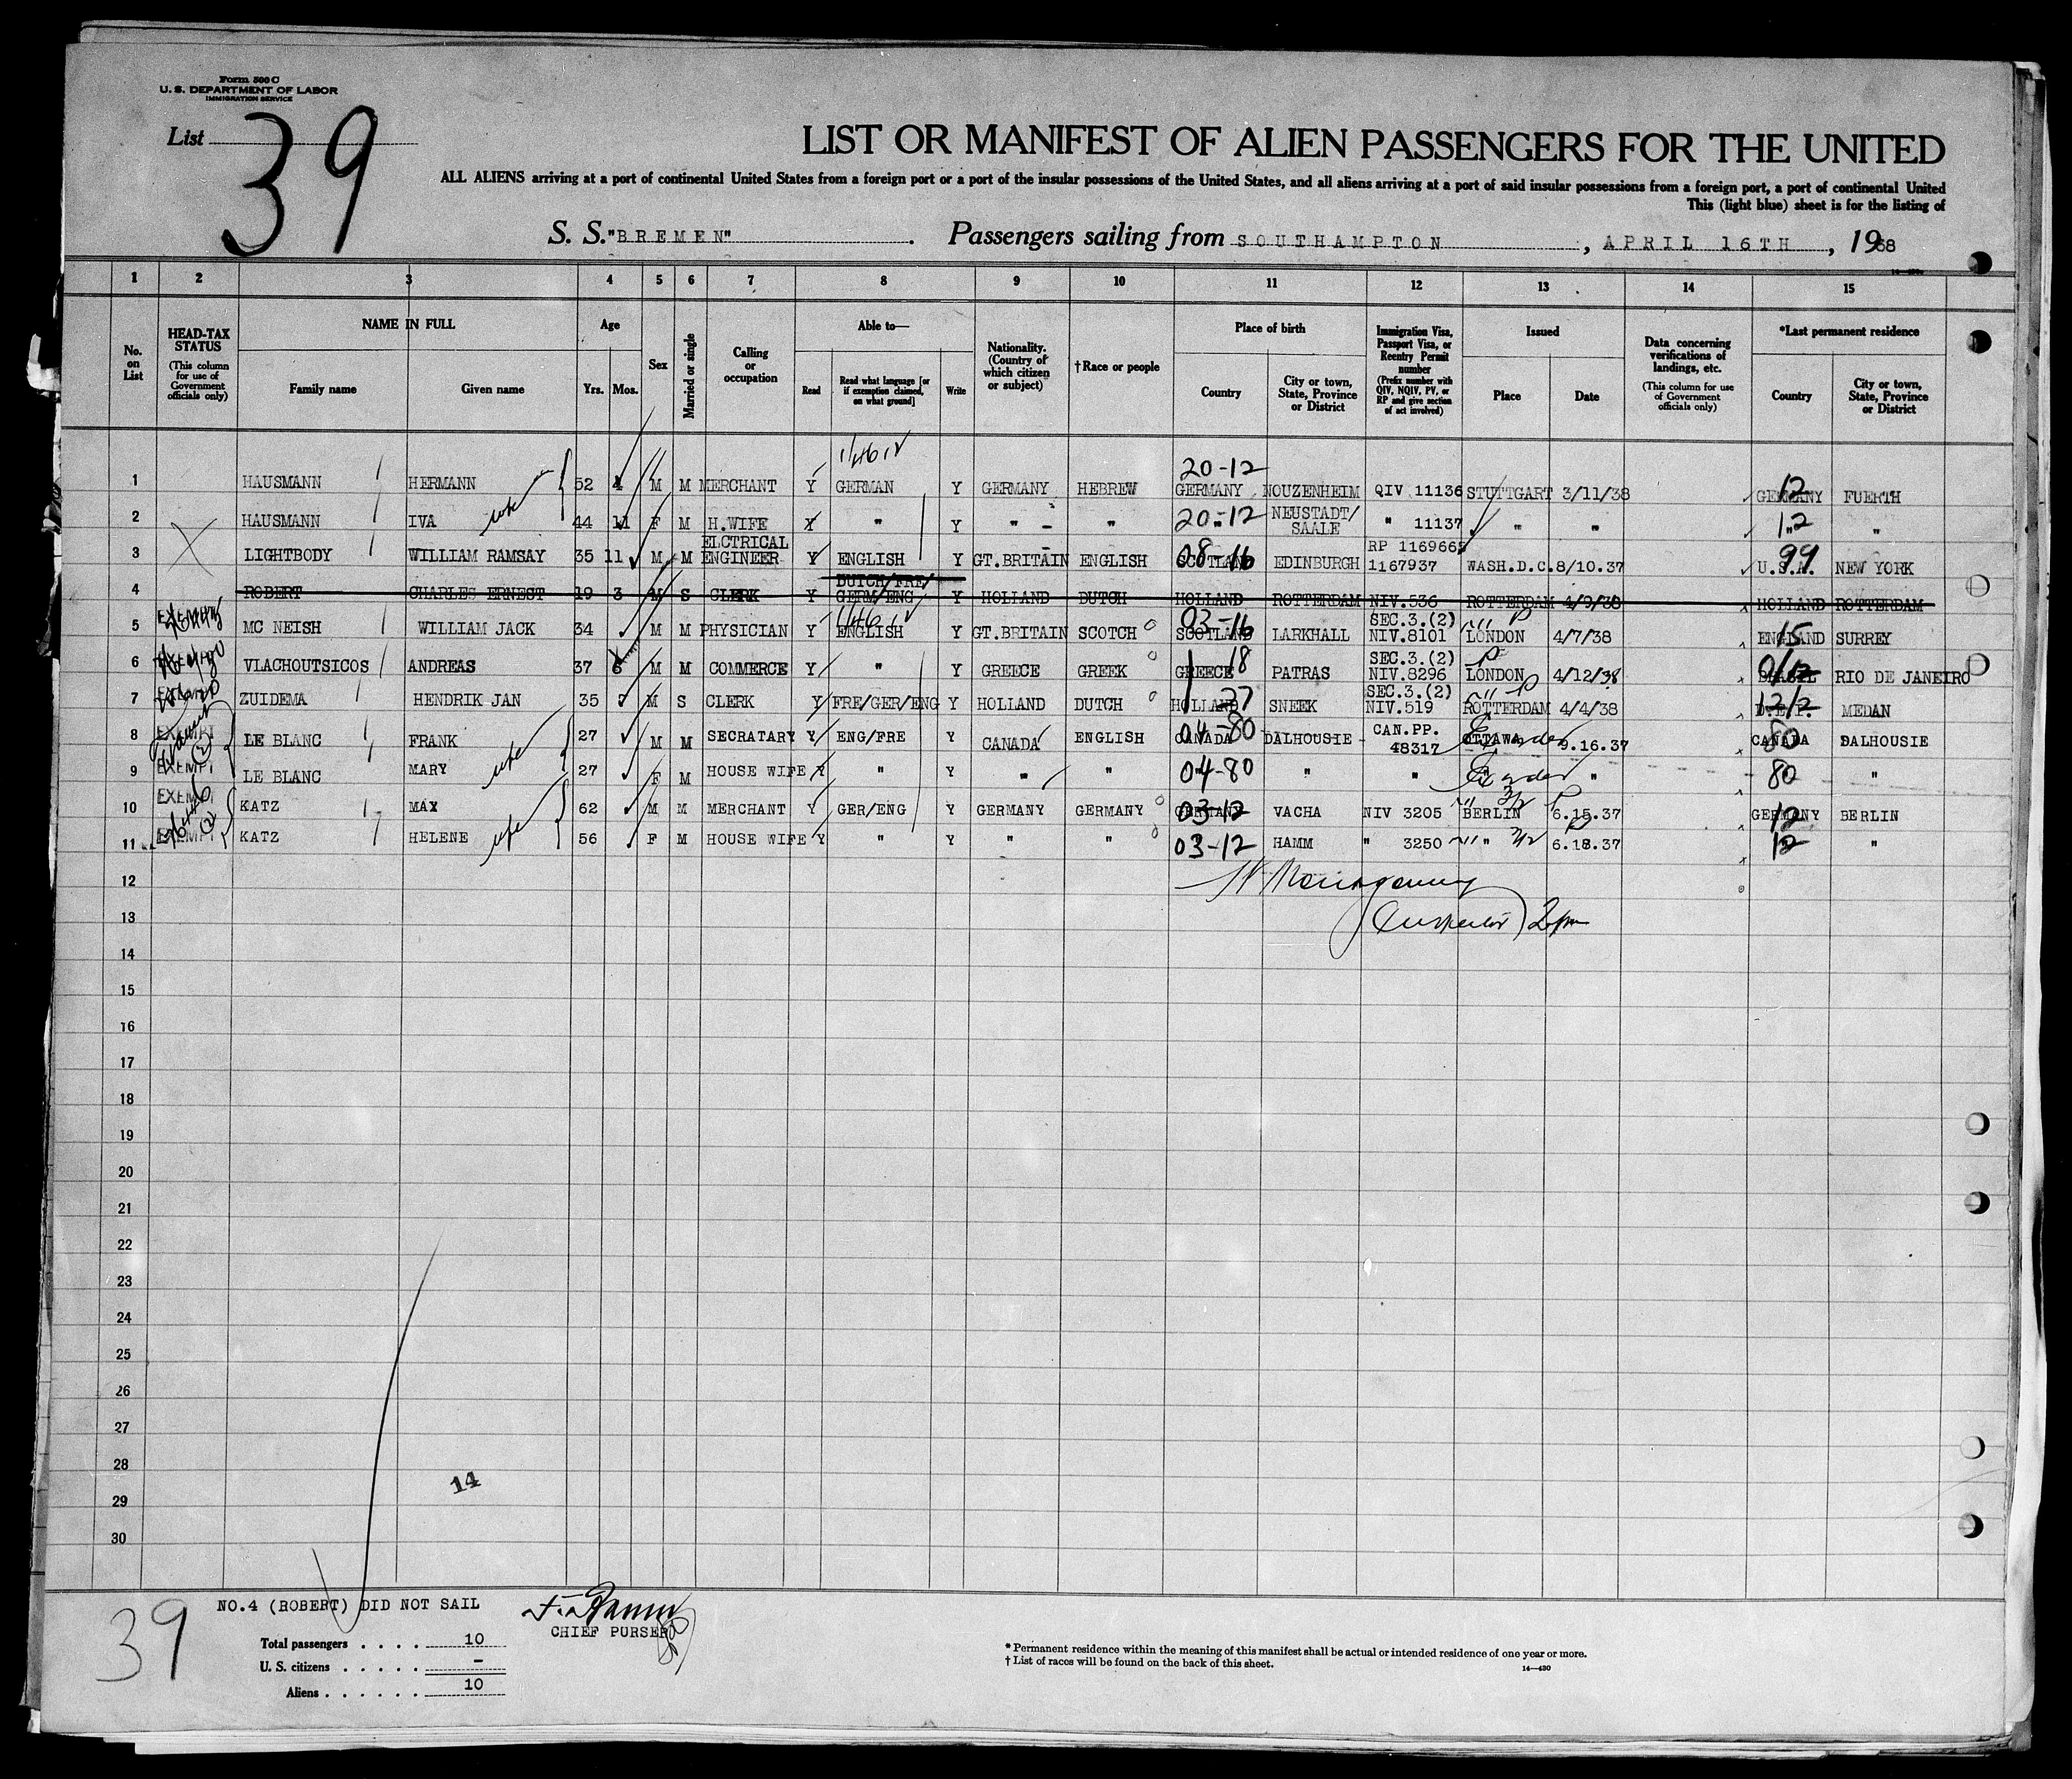 Form 500 C
U. S. DEPARTMENT OF LABOR
IMMIGRATION SERVICE
List 39
LIST OR MANIFEST OF ALIEN PASSENGERS FOR THE UNITED
ALL ALIENS arriving at a port of continental United States from a foreign port or a port of the insular possessions of the United States, and all aliens arriving at a port of said insular possessions from a foreign port, a port of continental United
This (light blue) sheet is for the listing of
S. S. "BREMEN" . Passengers sailing from SOUTHAMPTON , APRIL 16TH , 1938
1 2 3 4 5 6 7 8 9 10 11 12 13 14 15
No. on List
HEAD-TAX STATUS (This column for use of Government officials only)
NAME IN FULL Family name Given name
Age Yrs. Mos.
Sex
Married or single
Calling or occupation
Able to— Read Read what language [or if exemption claimed, on what ground] Write
Nationality. (Country of which citizen or subject)
†Race or people
Place of birth Country City or town, State, Province or District
Immigration Visa, Passport Visa, or Reentry Permit number (Prefix number with QIV, NQIV, PV, or RP and give section of act involved)
Issued Place Date
Data concerning verifications of landings, etc. (This column for use of Government officials only)
*Last permanent residence Country City or town, State, Province or District
1 HAUSMANN HERMANN 52 4 M M MERCHANT Y GERMAN Y GERMANY HEBREW 20-12 GERMANY NOUZENHEIM QIV 11136 STUTTGART 3/11/38 12 GERMANY FUERTH
2 HAUSMANN IVA wife 44 11 F M H.WIFE Y " Y " - " 20-12 " NEUSTADT/ SAALE " 11137 " " 12 " "
3 LIGHTBODY WILLIAM RAMSAY 35 11 M M ELCTRICAL ENGINEER Y ENGLISH Y GT.BRITAIN ENGLISH 08-16 SCOTLAND EDINBURGH RP 1169665 1167937 WASH.D.C. 8/10.37 99 U.S.A. NEW YORK
4 ROBERT CHARLES ERNEST 19 3 M S CLERK Y DUTCH/FRE/ GERM/ENG Y HOLLAND DUTCH HOLLAND ROTTERDAM NIV.536 ROTTERDAM 4/9/38 HOLLAND ROTTERDAM
5 EXEMPT MC NEISH WILLIAM JACK 34 M M PHYSICIAN Y ENGLISH Y GT.BRITAIN SCOTCH 03-16 SCOTLAND LARKHALL SEC.3.(2) NIV.8101 LONDON 4/7/38 15 ENGLAND SURREY
6 EXEMPT VLACHOUTSICOS ANDREAS 37 6 M M COMMERCE Y " Y GREECE GREEK 18 GREECE PATRAS SEC.3.(2) NIV.8296 LONDON 4/12/38 BRAZIL RIO DE JANEIRO
7 EXEMPT ZUIDEMA HENDRIK JAN 35 M S CLERK Y FRE/GER/ENG Y HOLLAND DUTCH HOLLAND SNEEK SEC.3.(2) NIV.519 ROTTERDAM 4/4/38 MEDAN
8 EXEMPT LE BLANC FRANK 27 M M SECRATARY Y ENG/FRE Y CANADA ENGLISH 04-80 CANADA DALHOUSIE CAN.PP. 48317 OTTAWA 9.16.37 80 CANADA DALHOUSIE
9 EXEMPT LE BLANC MARY wife 27 F M HOUSE WIFE Y " Y " " 04-80 " " " " 80 "
10 EXEMPT KATZ MAX 62 M M MERCHANT Y GER/ENG Y GERMANY GERMANY 03-12 GERMANY VACHA NIV 3205 BERLIN 6.15.37 12 GERMANY BERLIN
11 EXEMPT KATZ HELENE wife 56 F M HOUSE WIFE Y " Y " " 03-12 HAMM " 3250 " 6.18.37 12 "
12
13 (Inspector) 2pm
14
15
16
17
18
19
20
21
22
23
24
25
26
27
28
14
29
30
NO.4 (ROBERT) DID NOT SAIL
CHIEF PURSER
39
Total passengers . . . . 10
U. S. citizens . . . . . -
Aliens . . . . . . 10
* Permanent residence within the meaning of this manifest shall be actual or intended residence of one year or more.
† List of races will be found on the back of this sheet.
14—430